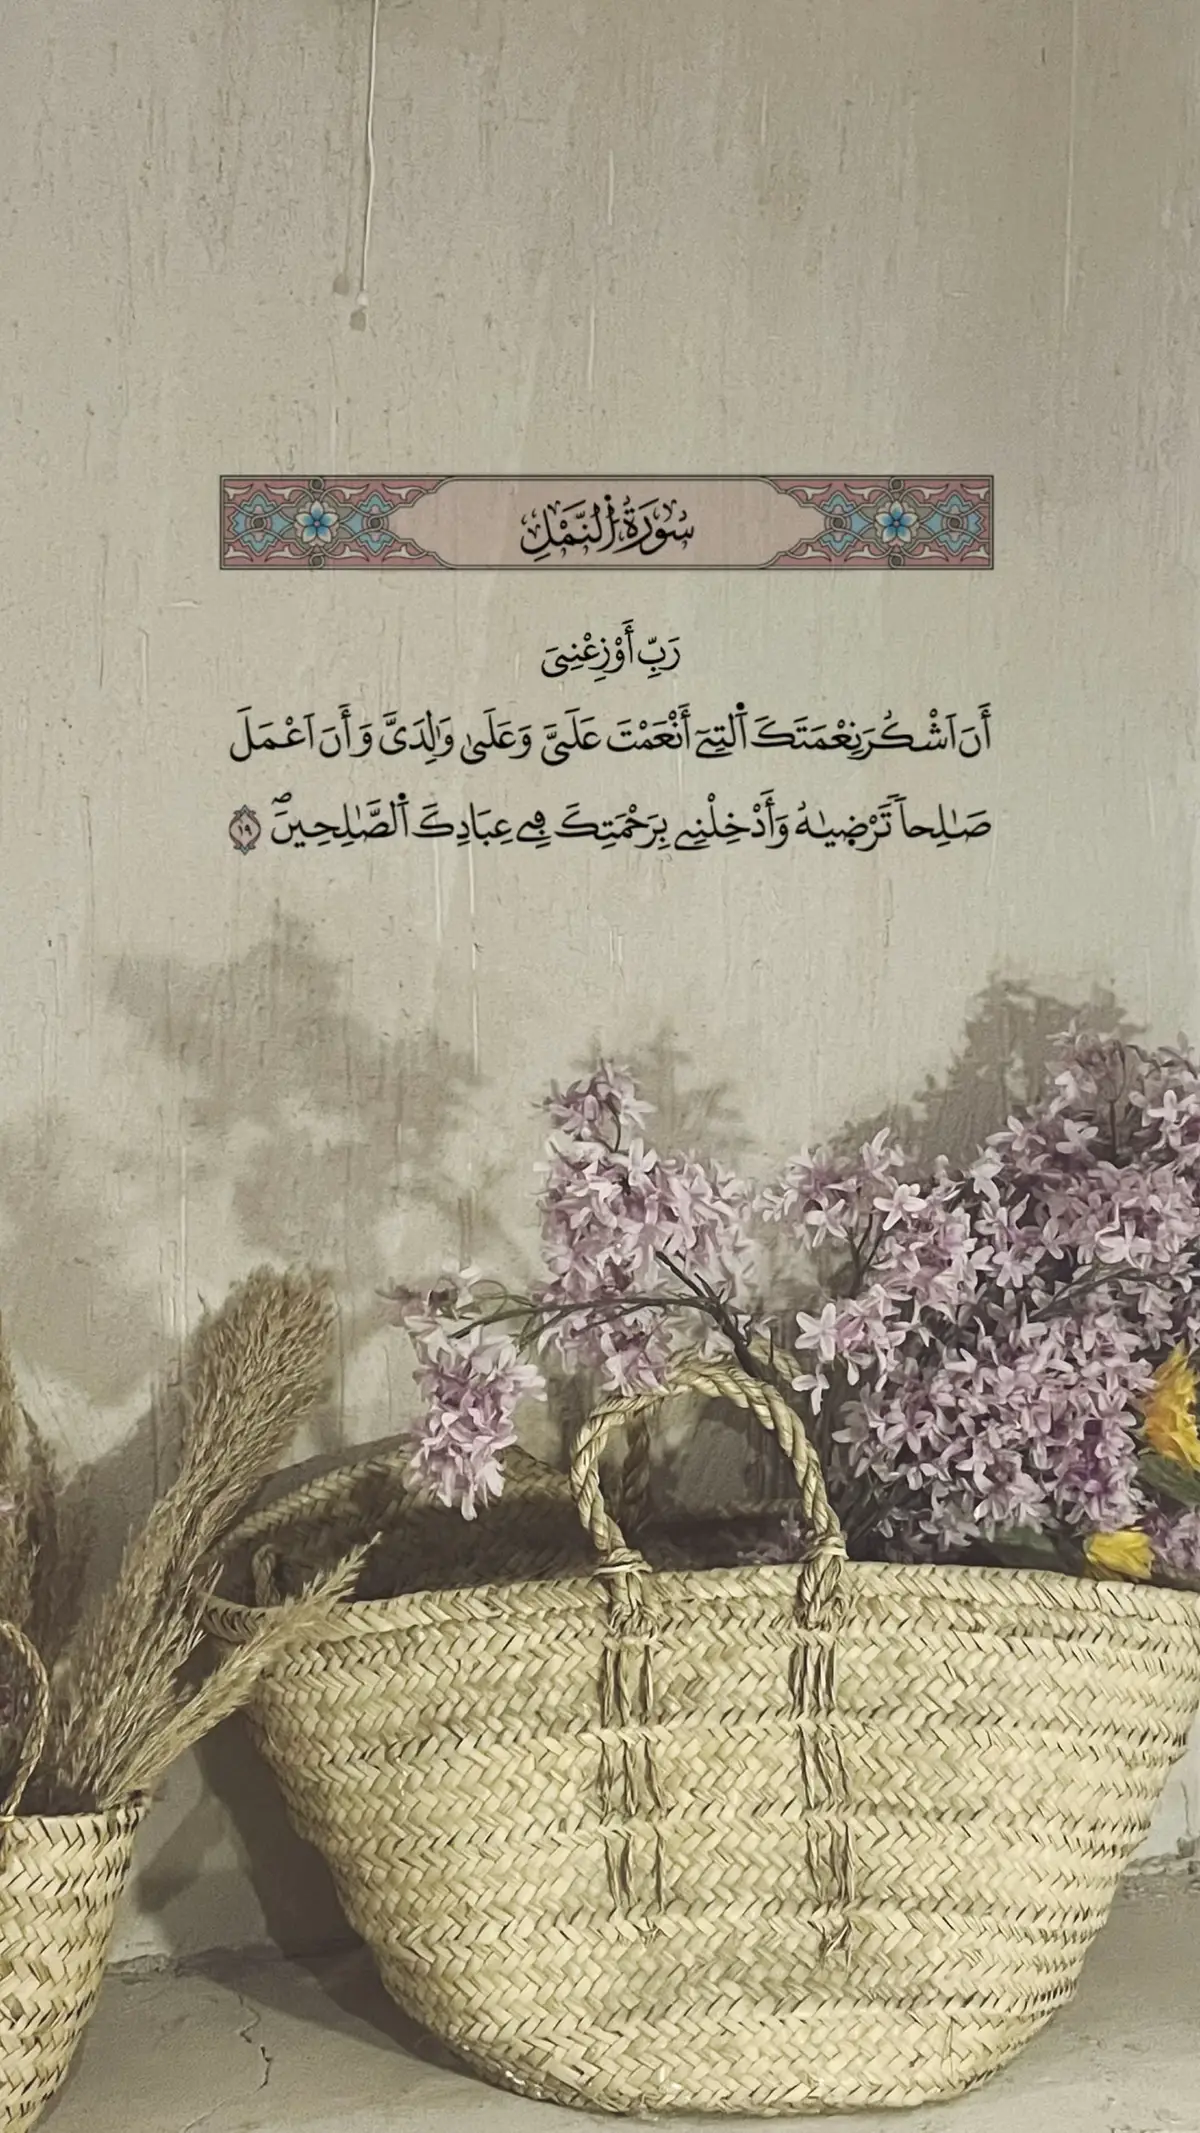 سُورَةُ النَّمْلِ
رَبِّ أَوْزِعْنِىَ
أَنَ اَشْكُرَ نِعْمَتَكَ اَ۬لتِےٓ أَنْعَمْتَ عَلَىَّ وَعَلَىٰ وَٰلِدَىَّ وَأَنَ اَعْمَلَ
صَٰلِحاٗ تَرْضَيٰهُ وَأَدْخِلْنِے بِرَحْمَتِكَ فِے عِبَادِكَ اَ۬لصَّٰلِحِينَۖ ١٩